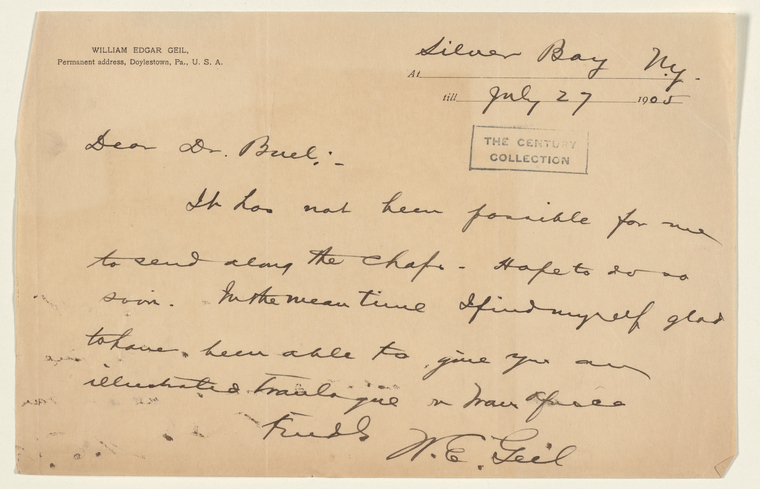 WILLIAM EDGAR GEIL,
Permanent address, Doylestown, Pa., U. S. A.
At Silver Bay N.Y.
till July 27 1905
THE CENTURY
COLLECTION
Dear Dr. Buel:-
It has not been possible for me
to send along the Chaps - Hope to do so
soon. In the mean time I find myself glad
to have been able to give you an
illustrated travelogue
W. E. Geil